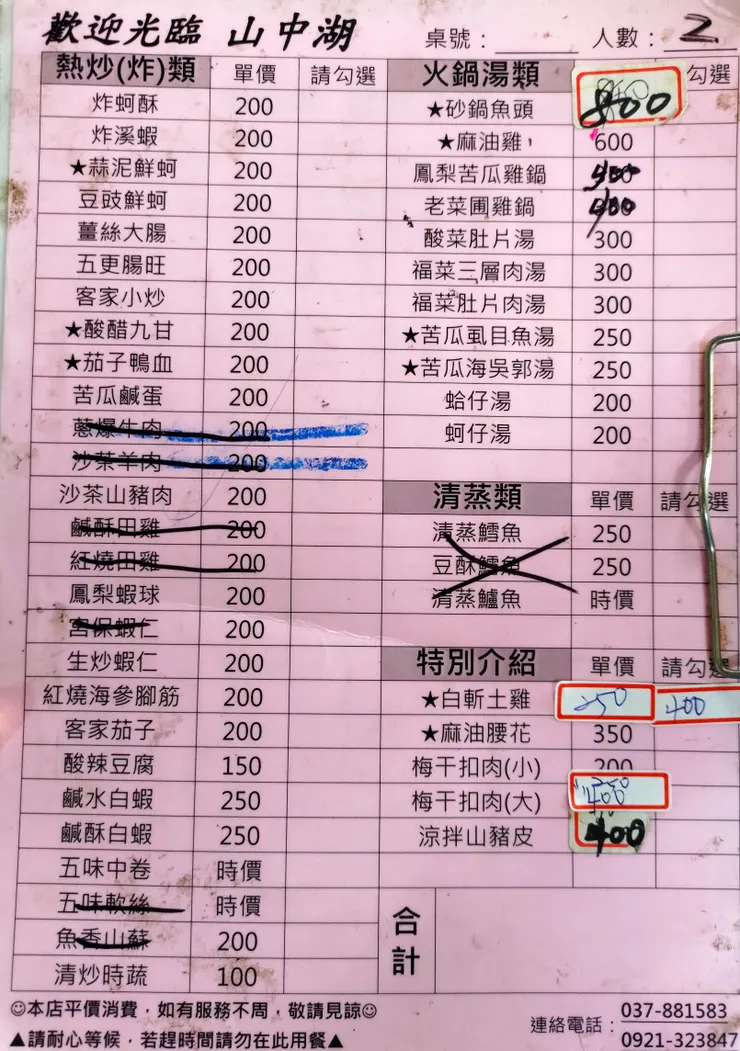 歡迎光臨 山中湖 桌號： 人數：2
熱炒(炸)類 單價 請勾選
炸蚵酥 200
炸溪蝦 200
★蒜泥鮮蚵 200
豆豉鮮蚵 200
薑絲大腸 200
五更腸旺 200
客家小炒 200
★酸醋九甘 200
★茄子鴨血 200
苦瓜鹹蛋 200
蔥爆牛肉 200
沙茶羊肉 200
沙茶山豬肉 200
鹹酥田雞 200
紅燒田雞 200
鳳梨蝦球 200
宮保蝦仁 200
生炒蝦仁 200
紅燒海參腳筋 200
客家茄子 200
酸辣豆腐 150
鹹水白蝦 250
鹹酥白蝦 250
五味中卷 時價
五味軟絲 時價
魚香山蘇 200
清炒時蔬 100
火鍋湯類 勾選
★砂鍋魚頭 800
★麻油雞, 600
鳳梨苦瓜雞鍋
老菜圃雞鍋 400
酸菜肚片湯 300
福菜三層肉湯 300
福菜肚片肉湯 300
★苦瓜虱目魚湯 250
★苦瓜海吳郭湯 250
蛤仔湯 200
蚵仔湯 200
清蒸類 單價 請勾選
清蒸鱈魚 250
豆酥鱈魚 250
清蒸鱸魚 時價
特別介紹 單價 請勾選
★白斬土雞 250 400
★麻油腰花 350
梅干扣肉(小) 200
梅干扣肉(大) 400
涼拌山豬皮 400
合計
☺本店平價消費，如有服務不周，敬請見諒☺
▲請耐心等候，若趕時間請勿在此用餐▲
連絡電話： 037-881583
0921-323847